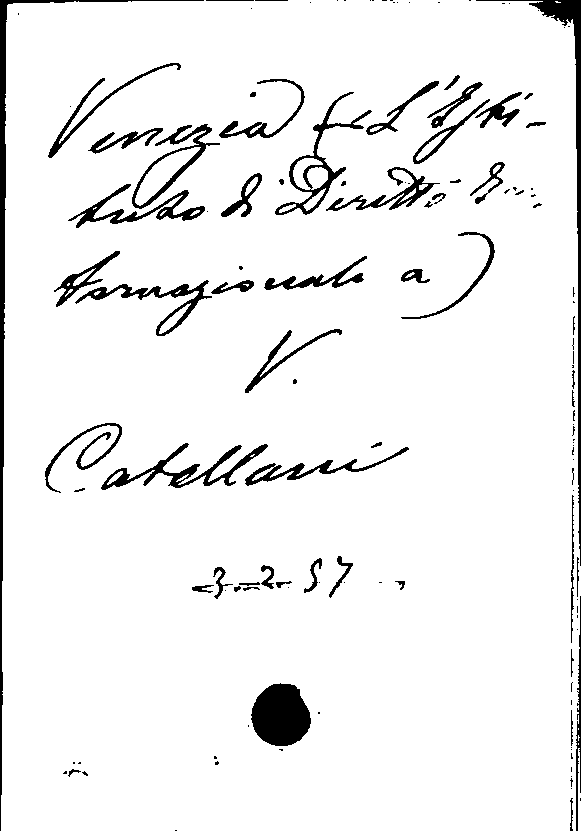 Venezia (L'Isti-
tuto di Diritto In-
ternazionale a)
V.
Catellani
3.2.57